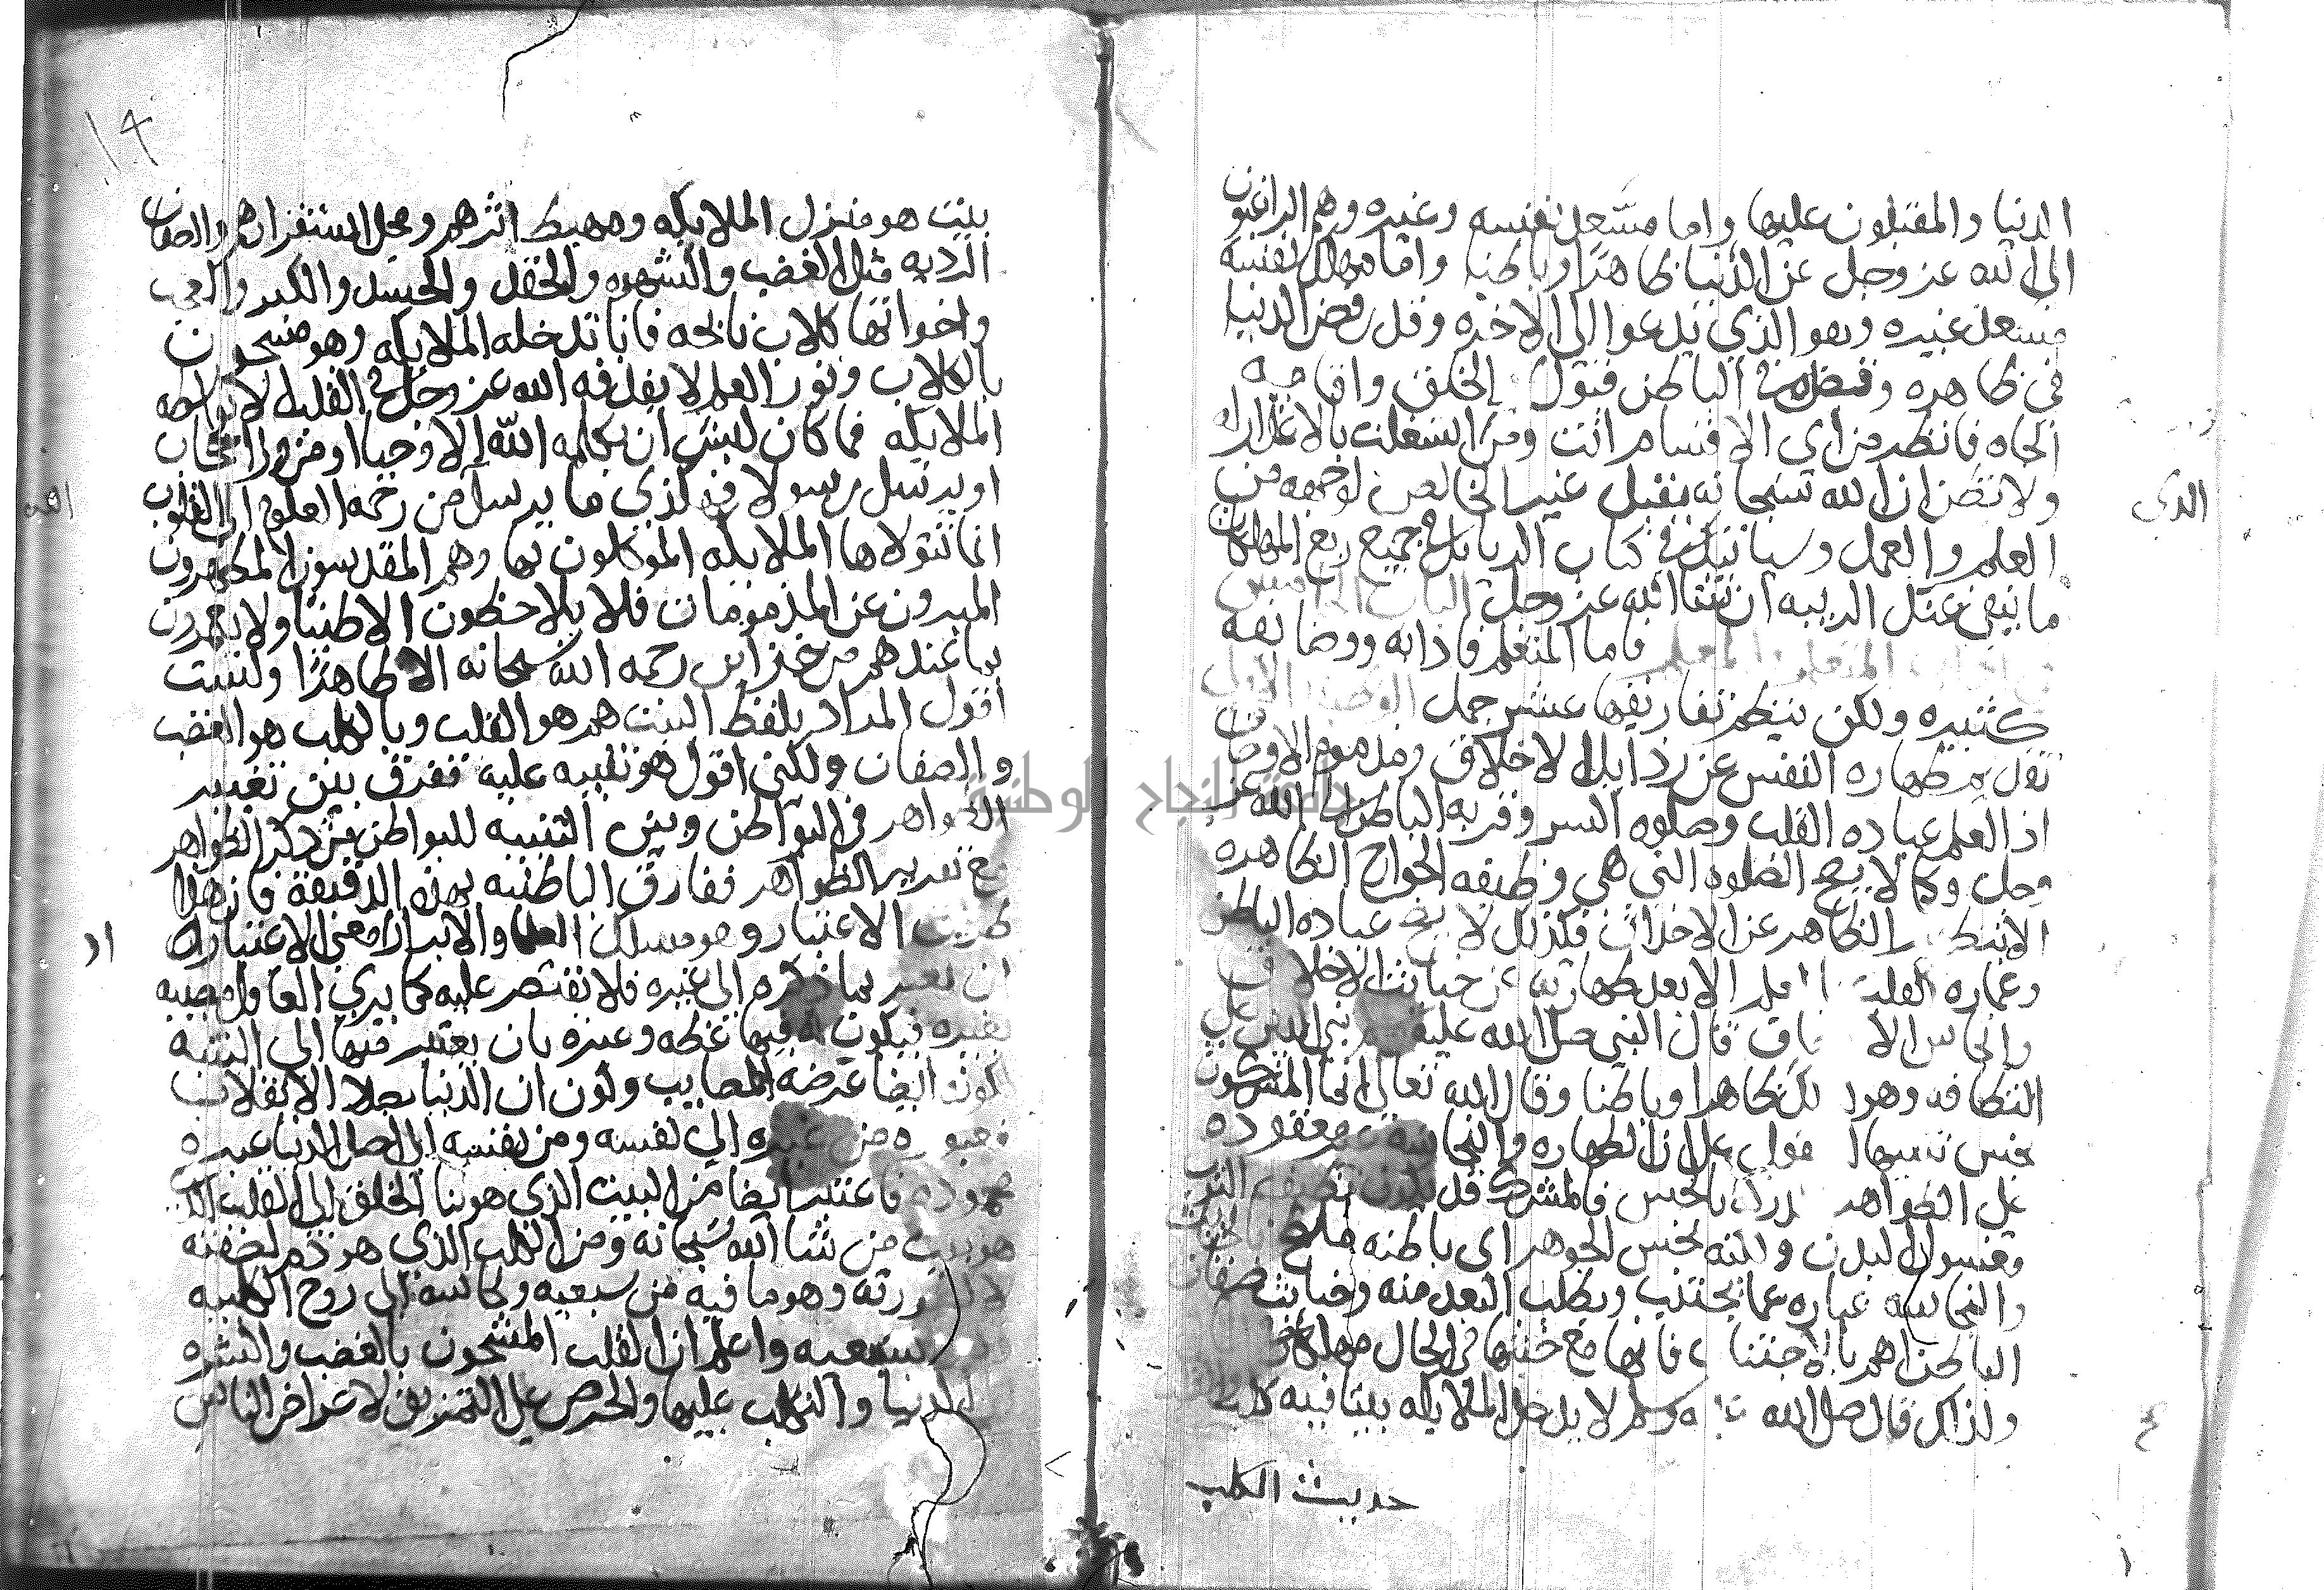 الدنيا والمقبلون عليها واما مسعد نفسه وغيره وهم الراغبون
الى الله عز وجل عن الدنيا ظاهرا وباطنا واما مهلك نفسه
مسعد غيره وهو الذي يدعوا الى الاخره وقد رفض الدنيا
في ظاهره وقصده في الباطن قبول الخلق واقامه
الجاه فانظر من اي الاقسام انت ومن اشتغلت بالاعداد له
ولا تظن ان الله سبحانه يقبل غير الخالص لوجهه من
الذي
العلم والعمل وسياتيك في كتاب الريا بل في جميع ربع المهلكات
ما ينفي عنك الريبه ان شا الله عز وجل الباب الخامس
المتعلم والمعلم فاما المتعلم فادابه ووضايفه
كثيره ولكن ينظم تفاريقها عشر جمل الوضيفه الاولى
تقديم طهاره النفس عن رذايل الاخلاق ومذموم الاوصاف
اذ العلم عباده القلب وصلوه السر وقربه الباطن الى الله عز
وجل وكما لا يصح الصلوه التي هي وظيفه الجوارح الظاهره
الا بتطهير الظاهر عن الاحداث فكذلك لا يصح عباده الباطن
وعماره القلب العلم الا بعد طهارته عن خبايث الاخلاق
وانجاس الا قال النبي صلى الله عليه بني الدين على
النظافه وهو لك ظاهرا وباطنا وقال الله تعالى انما المشركون
نجس تنبيها للعقول على ان الطهاره والنجاسه معقوده
على الظواهر تدرك بالحس فالمشرك قد يكون نظيف الثوب
مغسول البدن ولكنه نجس الجوهر اي باطنه ملطخ بالخبث
والنجاسه عباره عما يجتنب ويطلب البعد منه وخبايث صفات
الباطن اهم بالاجتناب فانها مع خبثها في الحال مهلكه
ولذلك قال صلى الله عليه وسلم لا يدخل الملايكه بيتا فيه كلب
حديث الكلب
١٩
بيت هو منزل الملايكه ومهبط اثرهم ومحل استقرارهم والصفات
الرديه مثل الغضب والشهوه والحقد والحسد والكبر والعجب
واخواتها كلاب نابحه فانا تدخله الملايكه وهو مشحون
بالكلاب ونور العلم لا يقذفه الله عز وجل في القلب الا بواسطه
الملايكه فما كان لبشر ان يكلمه الله الا وحيا او من ورا حجاب
او يرسل رسولا فهكذى ما يرسل من رحمه العلوم الى القلوب
انما تتولاها الملايكه الموكلون بها وهم المقدسون المطهرون
المبرون عن المذمومات فلا يلاحظون الا طيبا ولا يعمرون
بما عندهم من خزاين رحمه الله سبحانه الا ظاهرا ولست
اقول المراد بلفظ البيت هم هو القلب وبالكلب هو الغضب
والصفات ولكني اقول هو تنبيه عليه ففرق بين تغيير
الظواهر في البواطن وبين التنبيه للبواطن من ذكر الظواهر
مع تقرير الظواهر ففارق الباطنيه بهذه الدقيقه فان هذا
طريق الاعتبار وهو مسلك العلما والابرار معنى الاعتبار
ان يعبر بما ذكره الى غيره فلا يقتصر عليه كما يري العاقل مصيبه
لغيره فيكون له فيها عظه وعبره بان يعتبر منها الى التنبه
لكونه ايضا عرضه المصايب وكون ان الدنيا بصدد الانقلاب
فعبوره من غيره الى نفسه ومن نفسه الى اصل الدنيا عبره
محموده فاعتبر ايضا من البيت الذي هو بنا الخلق الى القلب الذي
هو بيت من بنا الله سبحانه ومن الكلب الذي هو ذم لصفته
لا لصورته وهو ما فيه من سبعيه ونجاسه الى روح الكلبيه
السبعيه واعلم ان القلب المشحون بالغضب والشره
الى الدنيا والتكلب عليها والحرص على التمزيق لاعراض الناس
جامعة النجاح الوطنية